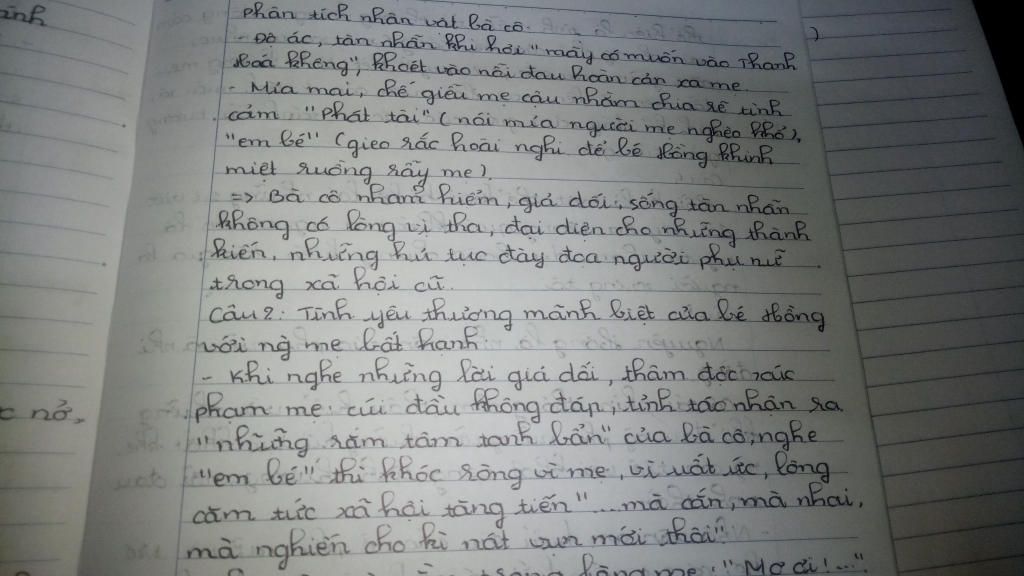 ình
phân tích nhân vật bà cô.
- Độ ác, tàn nhẫn khi hỏi "mày có muốn vào Thanh
Hoá không", khoét vào nỗi đau hoàn cảnh xa mẹ.
- Mỉa mai, chế giễu mẹ cậu nhằm chia rẽ tình
cảm "phát tài" (nói mỉa người mẹ nghèo khổ),
"em bé" (gieo rắc hoài nghi để bé Hồng khinh
miệt ruồng rẫy mẹ).
=> Bà cô nham hiểm, giả dối, sống tàn nhẫn
không có lòng vị tha, đại diện cho những thành
kiến, những hủ tục đày đọa người phụ nữ
trong xã hội cũ.
Câu 2: Tình yêu thương mãnh liệt của bé Hồng
với ng mẹ bất hạnh.
- Khi nghe những lời giả dối, thâm độc xúc
phạm mẹ: cúi đầu không đáp, tỉnh táo nhận ra
c nở,
"những rắm tâm tanh bẩn" của bà cô, nghe
"em bé" thì khóc ròng vì mẹ, vì uất ức, lòng
căm tức xã hội tăng tiến "...mà cắn, mà nhai,
mà nghiến cho kì nát vụn mới thôi".
trong lòng mẹ: "Mợ ơi!..."